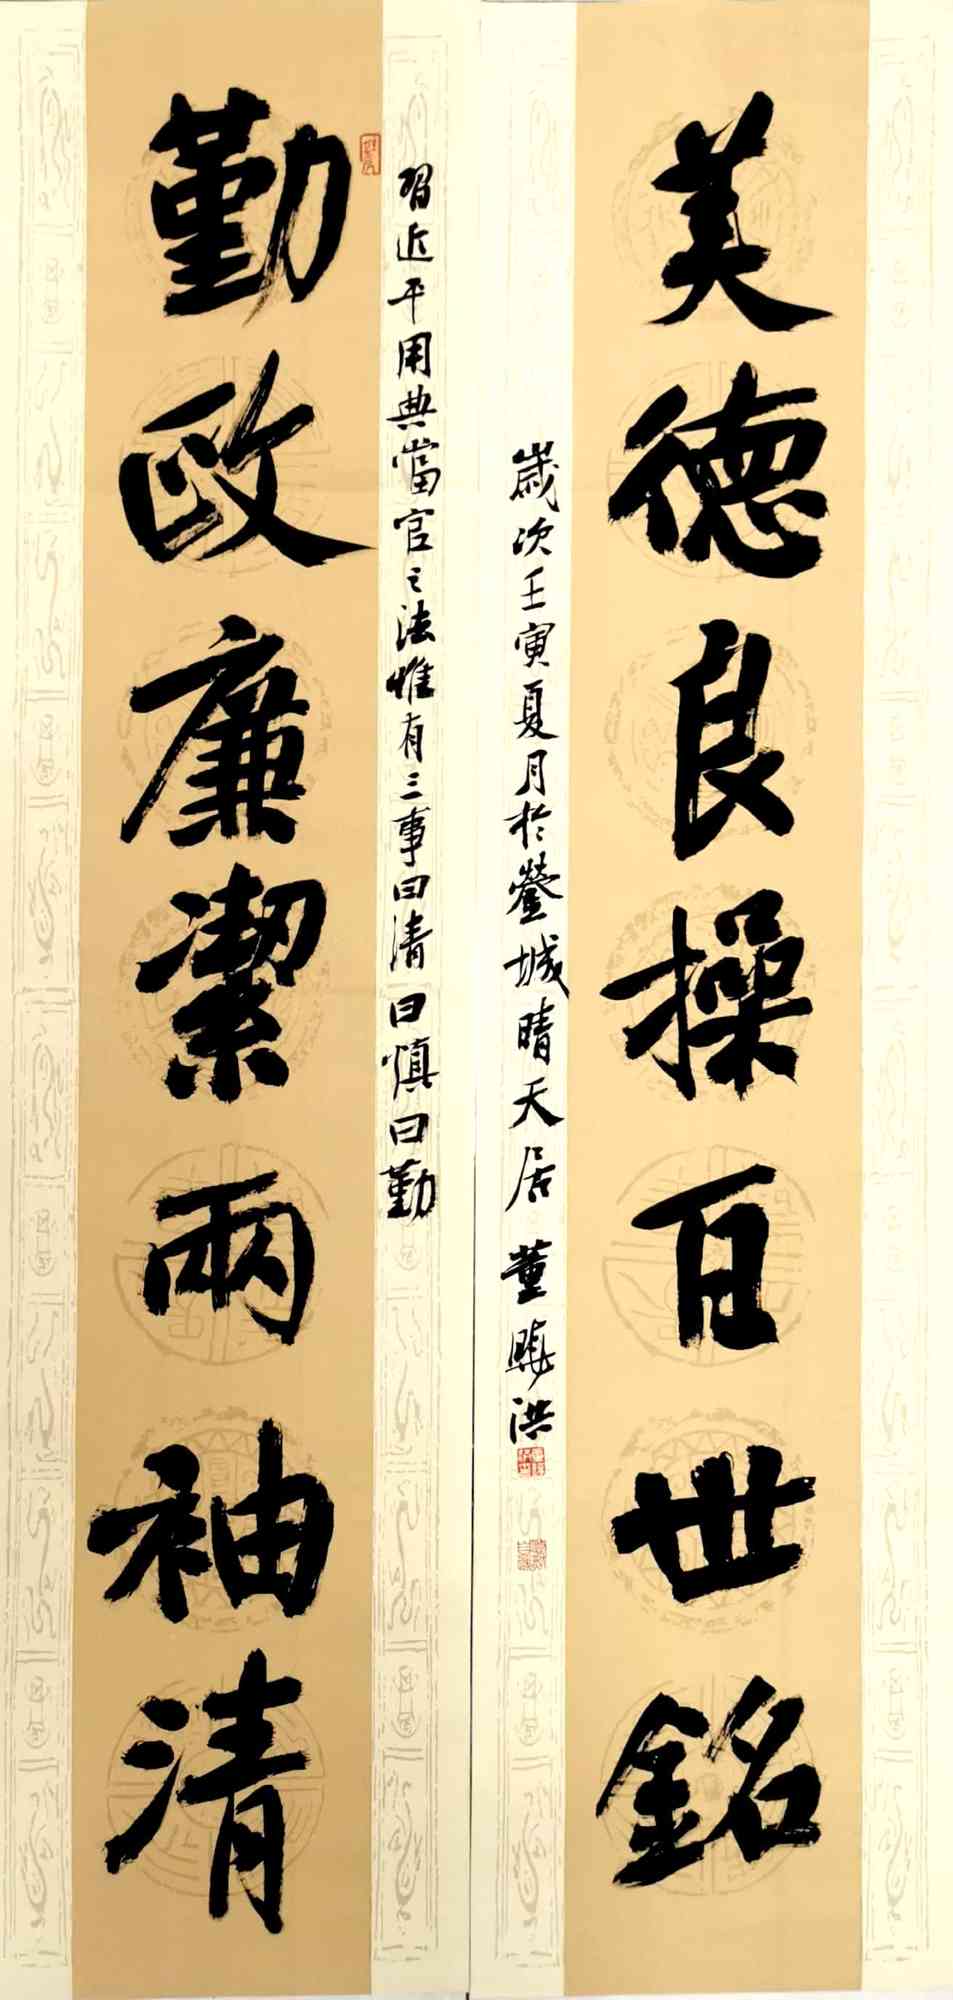 美德良操百世銘
歲次壬寅夏月於鎣城晴天居 董 洪
習近平用典當官之法惟有三事曰清曰慎曰勤
勤政廉潔兩袖清